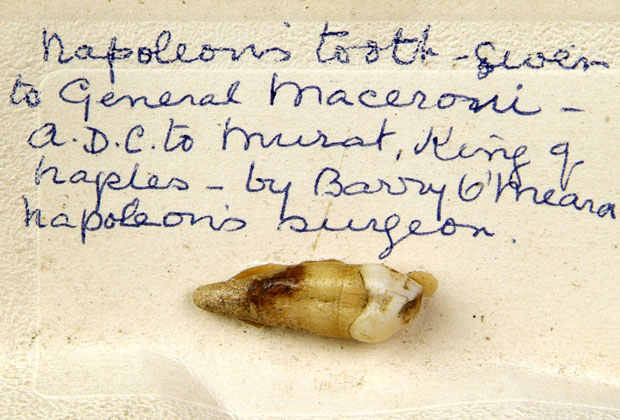 Napoleon's tooth - given
to General Maceroni -
A.D.C. to Murat, King of
Naples - by Barry O'Meara
Napoleon's surgeon.